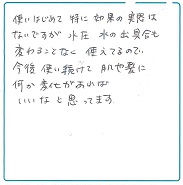 使いはじめて 特に 効果の 実感は
ないですが 水圧 水の出具合も
変わることなく 使えてるので、
今後 使い続けて 肌や髪に
何か 変化が あれば
いいな と 思ってます。